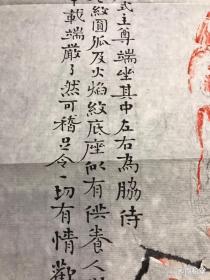 式主尊端坐其中左右為脇侍
紋圓弧及火焰紋底座似有供養人
載端嚴了然可稽足令一切有情歡